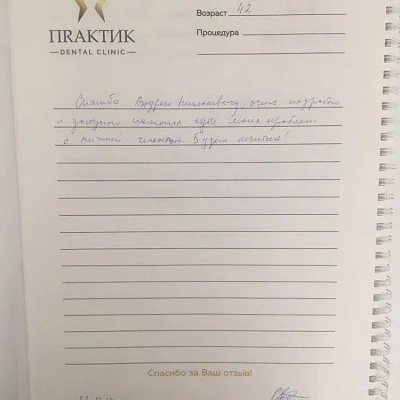 ПRАКТИК
DENTAL CLINIC
Возраст 42
Процедура
Спасибо Андрею Николаевичу, очень подробно
и доходчиво
с нижней челюстью. Будем лечиться!
Спасибо за Ваш отзыв!